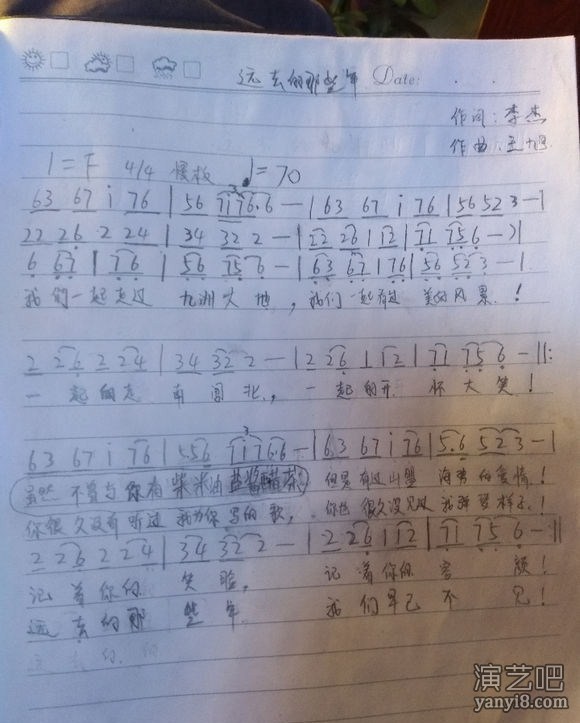 远去的那些年 Date:
作词:李杰
作曲:王旭
1=F 4/4 慢板 ♩=70
63 67 i 76 | 56 7176.6 — | 63 67 i 76 | 56 52 3 — |
22 26 2 24 | 34 32 2 — | 22 26 1 12 | 71 75 6 — |
6 67 1 76 | 56 75 6 — | 63 67 1 76 | 56 53 3 — |
我们一起走过 九洲大地,我们一起看过 美好风景!
2 26 2 24 | 34 32 2 — | 2 26 1 12 | 71 75 6 — :||
一起的走 南闯北,一起的开 怀大笑!
63 67 i 76 | 5.56 7176.6 — | 63 67 i 76 | 5.6 52 3 — |
虽然 不曾与你有柴米油盐酱醋茶 但是有过山盟 海誓的爱情!
你很久没有听过 我为你写的歌,你也很久没见过 我弹琴样子!
2 26 2 24 | 34 32 2 — | 2 26 1 12 | 71 75 6 — ||
记着你的 笑脸, 记着你的 容颜!
远去的那 些年 我们早已 不见!
演艺吧
yanyi8.com